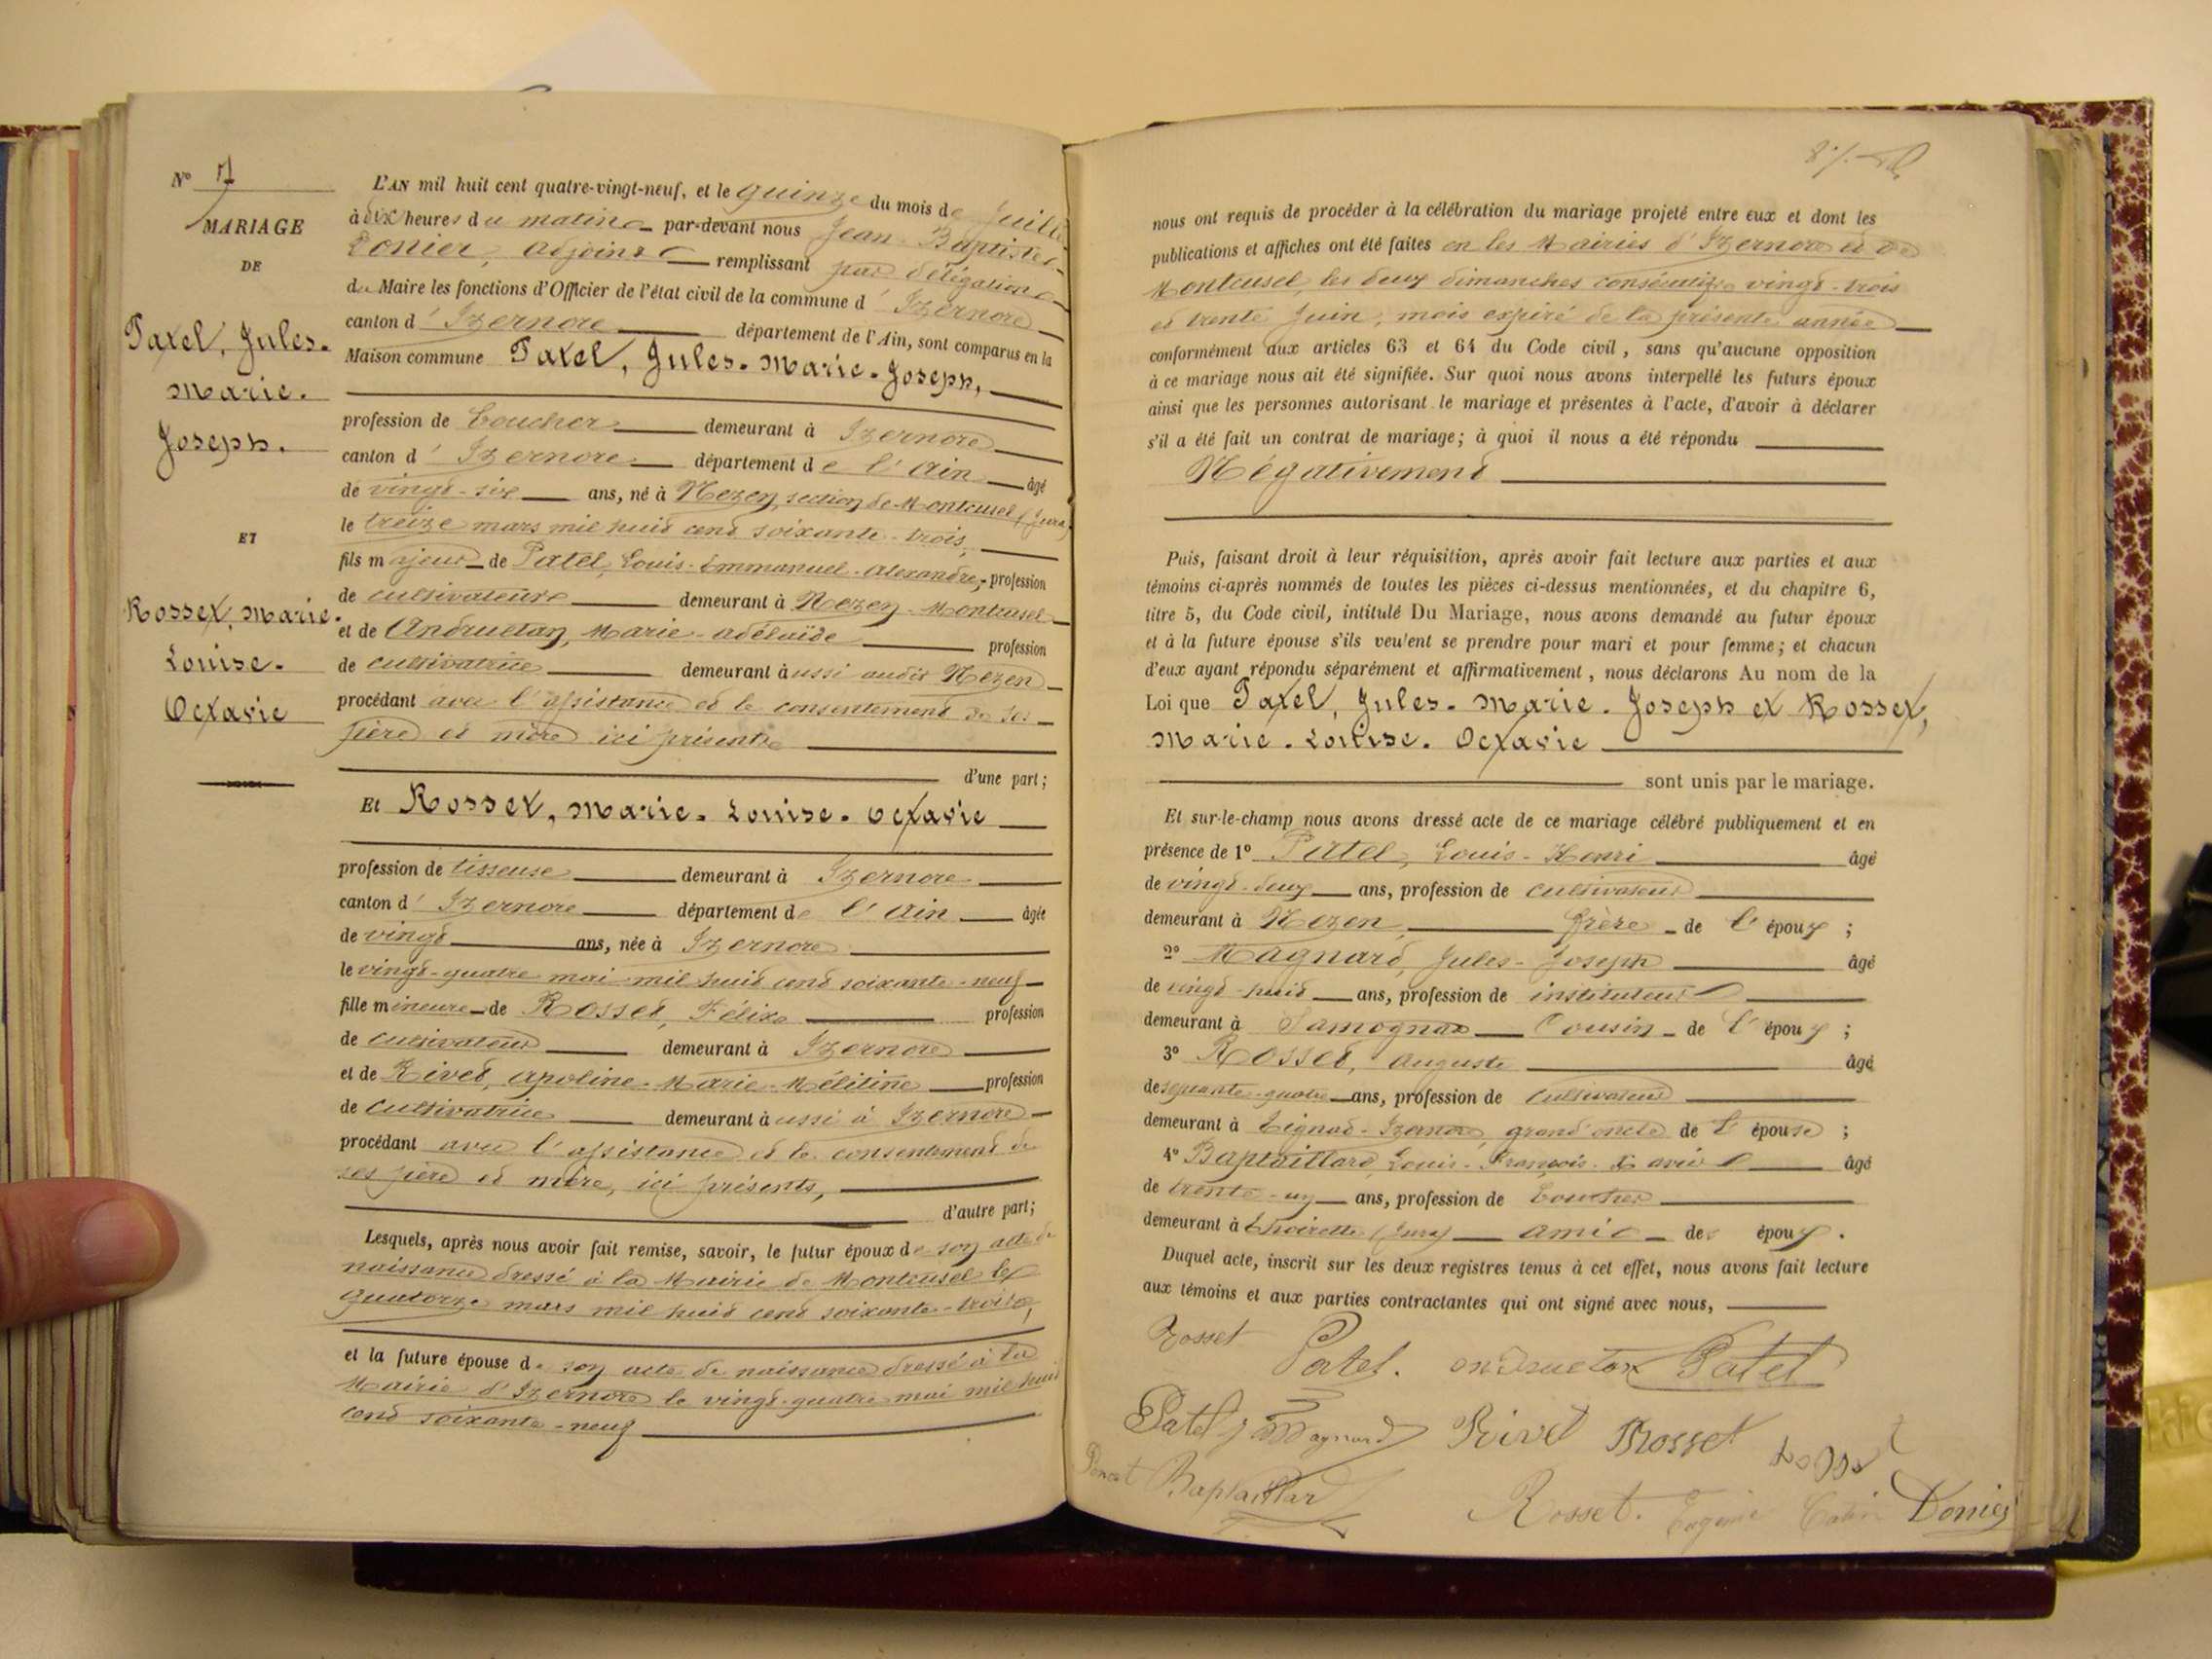 N° 7
MARIAGE
DE
Patel, Jules-
Marie-
Joseph.
ET
Rosset, Marie-
Louise-
Octavie
L'AN mil huit cent quatre-vingt-neuf, et le quinze du mois de juillet
à dix heures du matin par-devant nous Jean-Baptiste
Donier, adjoint remplissant par délégation
du Maire les fonctions d'Officier de l'état civil de la commune d'Izernore
canton d'Izernore département de l'Ain, sont comparus en la
Maison commune Patel, Jules-Marie-Joseph,
profession de boucher demeurant à Izernore
canton d'Izernore département de l'Ain âgé
de vingt-six ans, né à Nezen, section de Montcusel (Jura)
le treize mars mil huit cent soixante-trois,
fils majeur de Patel, Louis-Emmanuel-Alexandre, profession
de cultivateur demeurant à Nezen-Montcusel
et de Andruetan, Marie-Adélaïde profession
de cultivatrice demeurant aussi audit Nezen
procédant avec l'assistance et le consentement de ses
père et mère ici présents
d'une part;
Et Rosset, Marie-Louise-Octavie
profession de tisseuse demeurant à Izernore
canton d'Izernore département de l'Ain âgée
de vingt ans, née à Izernore
le vingt-quatre mai mil huit cent soixante-neuf
fille mineure de Rosset, Félix profession
de cultivateur demeurant à Izernore
et de Rivet, Apoline-Marie-Mélitine profession
de cultivatrice demeurant aussi à Izernore
procédant avec l'assistance et le consentement de
ses père et mère, ici présents,
d'autre part;
Lesquels, après nous avoir fait remise, savoir, le futur époux de son acte de
naissance dressé à la Mairie de Montcusel le
quatorze mars mil huit cent soixante-trois,
et la future épouse de son acte de naissance dressé à la
Mairie d'Izernore le vingt-quatre mai mil huit
cent soixante-neuf
nous ont requis de procéder à la célébration du mariage projeté entre eux et dont les
publications et affiches ont été faites en les Mairies d'Izernore et de
Montcusel, les deux dimanches consécutifs vingt-trois
et trente juin, mois expiré de la présente année
conformément aux articles 63 et 64 du Code civil, sans qu'aucune opposition
à ce mariage nous ait été signifiée. Sur quoi nous avons interpellé les futurs époux
ainsi que les personnes autorisant le mariage et présentes à l'acte, d'avoir à déclarer
s'il a été fait un contrat de mariage; à quoi il nous a été répondu
Négativement
Puis, faisant droit à leur réquisition, après avoir fait lecture aux parties et aux
témoins ci-après nommés de toutes les pièces ci-dessus mentionnées, et du chapitre 6,
titre 5, du Code civil, intitulé Du Mariage, nous avons demandé au futur époux
et à la future épouse s'ils veulent se prendre pour mari et pour femme; et chacun
d'eux ayant répondu séparément et affirmativement, nous déclarons Au nom de la
Loi que Patel, Jules-Marie-Joseph et Rosset,
Marie-Louise-Octavie
sont unis par le mariage.
Et sur-le-champ nous avons dressé acte de ce mariage célébré publiquement et en
présence de 1° Patel, Louis-Henri âgé
de vingt-deux ans, profession de cultivateur
demeurant à Nezen, frère de l'époux;
2° Magnard, Jules-Joseph âgé
de vingt-huit ans, profession de instituteur
demeurant à Samognat Cousin de l'époux;
3° Rosset, Auguste âgé
de septante-quatre ans, profession de cultivateur
demeurant à Tignat-Izernore, grand'oncle de l'épouse;
4° Baptaillard, Louis-François-Xavier âgé
de trente-un ans, profession de boucher
demeurant à Thoirette (Jura) ami des époux.
Duquel acte, inscrit sur les deux registres tenus à cet effet, nous avons fait lecture
aux témoins et aux parties contractantes qui ont signé avec nous,
Rosset Patel. andruetan Patel
Patel J Magnard Rivet Rosset Rosset
Poncet Baptaillard Rosset. Eugénie Donier